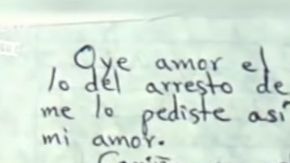 Oye amor el
lo del arresto de
me lo pediste así
mi amor.